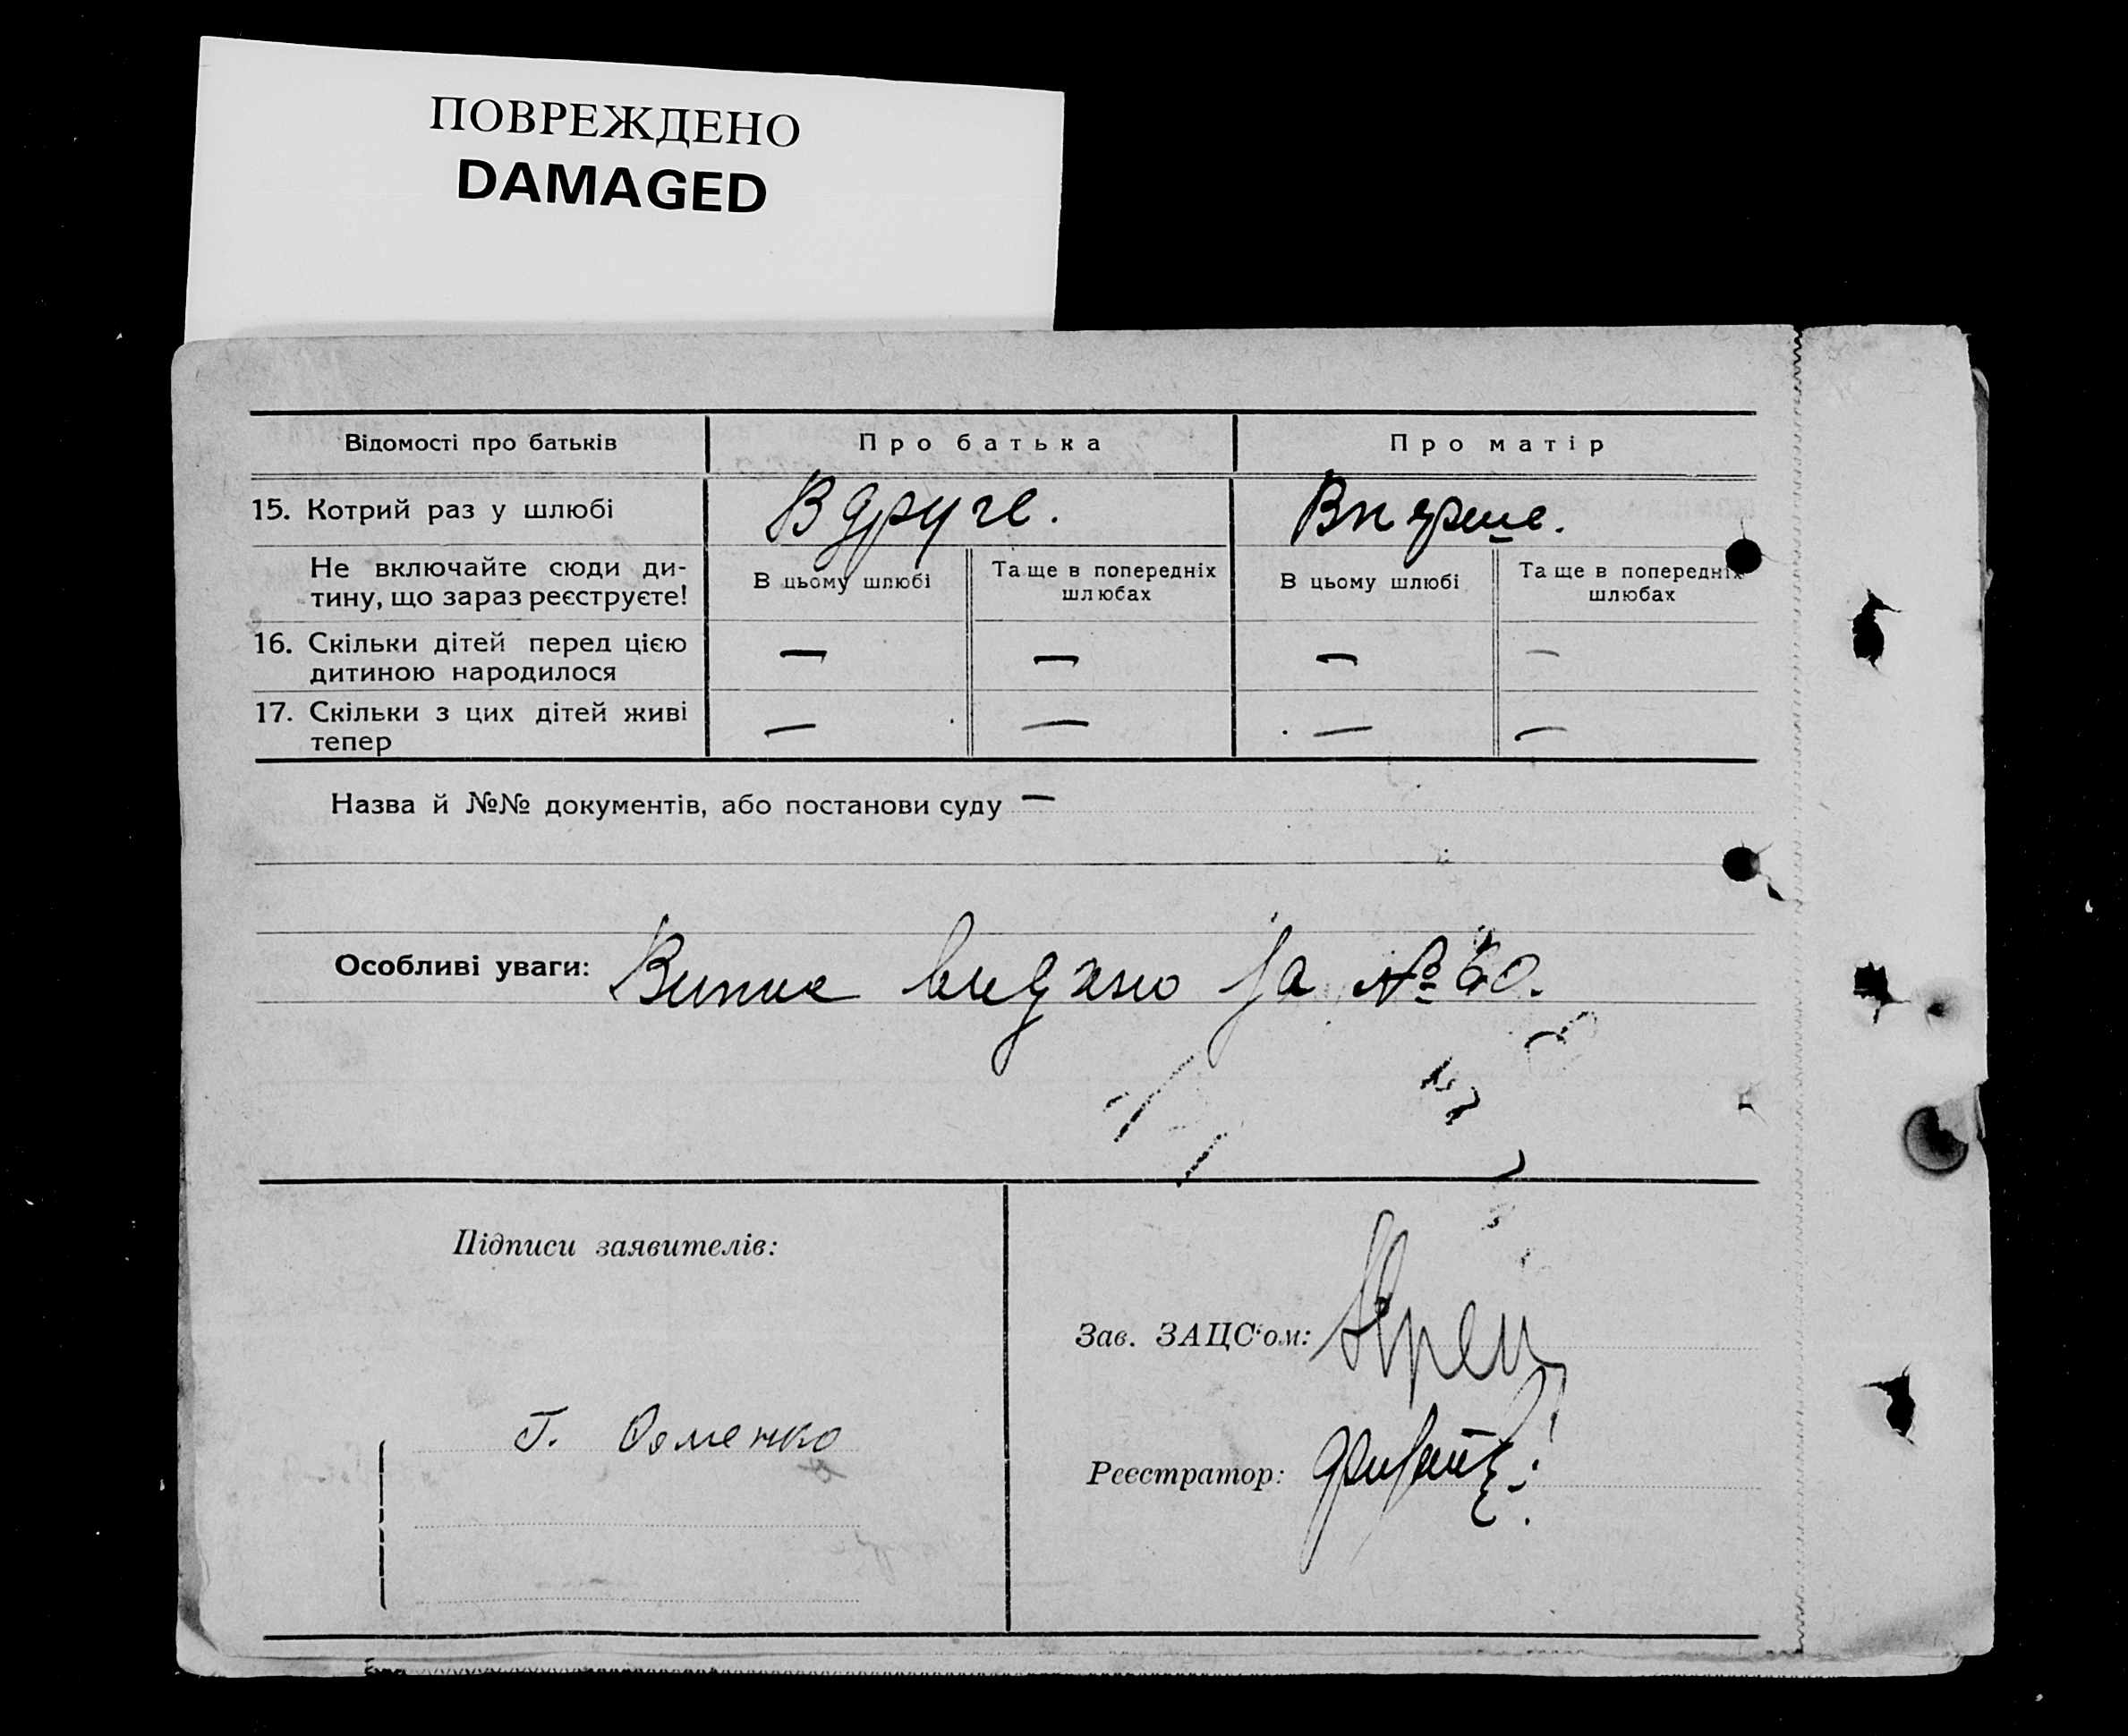 ПОВРЕЖДЕНО
DAMAGED
Відомості про батьків
Про батька
Про матір
15. Котрий раз у шлюбі
Вдруге.
Вперше.
Не включайте сюди ди-
тину, що зараз реєструєте!
В цьому шлюбі
Та ще в попередніх
шлюбах
В цьому шлюбі
Та ще в попередніх
шлюбах
16. Скільки дітей перед цією
дитиною народилося
— — — —
17. Скільки з цих дітей живі
тепер
— — — —
Назва й №№ документів, або постанови суду —
Особливі уваги: видано за № 60.
Підписи заявителів:
Зав. ЗАЦС'ом:
Г.
Реєстратор: